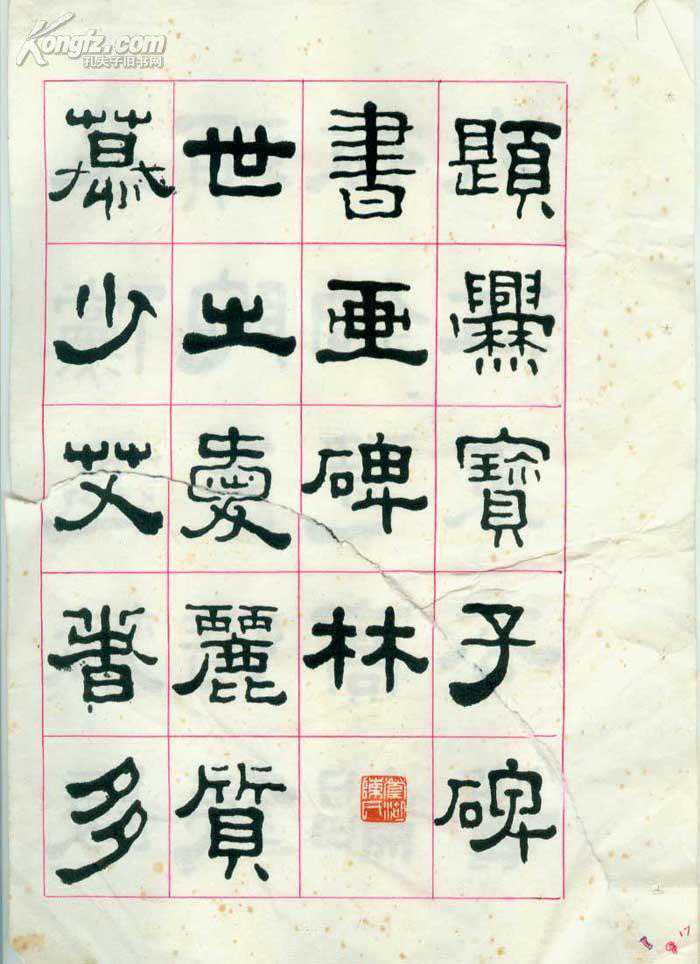 Kongfz.com
孔夫子旧书网
題爨寶子碑
書亞碑林
世之愛麗質
慕少艾者多
17